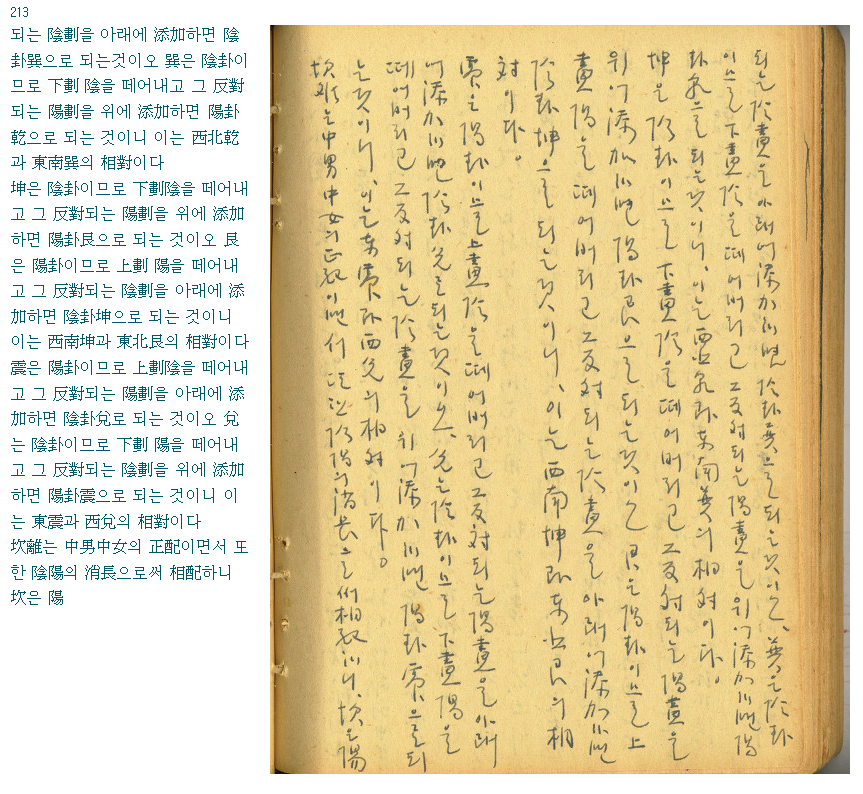 213
되는 陰劃을 아래에 添加하면 陰
卦巽으로 되는것이오 巽은 陰卦이
므로 下劃 陰을 떼어내고 그 反對
되는 陽劃을 위에 添加하면 陽卦
乾으로 되는 것이니 이는 西北乾
과 東南巽의 相對이다
坤은 陰卦이므로 下劃陰을 떼어내
고 그 反對되는 陽劃을 위에 添加
하면 陽卦艮으로 되는 것이오 艮
은 陽卦이므로 上劃 陽을 떼어내
고 그 反對되는 陰劃을 아래에 添
加하면 陰卦坤으로 되는 것이니
이는 西南坤과 東北艮의 相對이다
震은 陽卦이므로 上劃陰을 떼어내
고 그 反對되는 陽劃을 아래에 添
加하면 陰卦兌로 되는 것이오 兌
는 陰卦이므로 下劃 陽을 떼어내
고 그 反對되는 陰劃을 위에 添加
하면 陽卦震으로 되는 것이니 이
는 東震과 西兌의 相對이다
坎離는 中男中女의 正配이면서 또
한 陰陽의 消長으로써 相配하니
坎은 陽
되는 陰畫을 아래에 添加하면 陰卦巽으로 되는것이오, 巽은 陰卦
이므로 下畫陰을 떼어버리고 그 反対되는 陽畫을 위에 添加하면 陽
卦乾으로 되는것이니, 이는 西北乾과 東南巽의 相対이다.
坤은 陰卦이므로 下畫陰을 떼어버리고 그 反対되는 陽畫을
위에 添加하면 陽卦艮으로 되는것이오 艮은 陽卦이므로 上
畫陽을 떼어버리고 그 反対되는 陰畫을 아래에 添加하면
陰卦坤으로 되는것이니, 이는 西南坤과 東北艮의 相
対이다.
震은 陽卦이므로 上畫陰을 떼어버리고 그 反対되는 陽畫을 아래
에 添加하면 陰卦兌로 되는것이오, 兌는 陰卦이므로 下畫陽을
떼어버리고 그 反対되는 陰畫을 위에 添加하면 陽卦震으로 되
는것이니, 이는 東震과 西兌의 相対이다.
坎離는 中男中女의 正配이면서 또한 陰陽의 消長으로써 相配하니, 坎은 陽